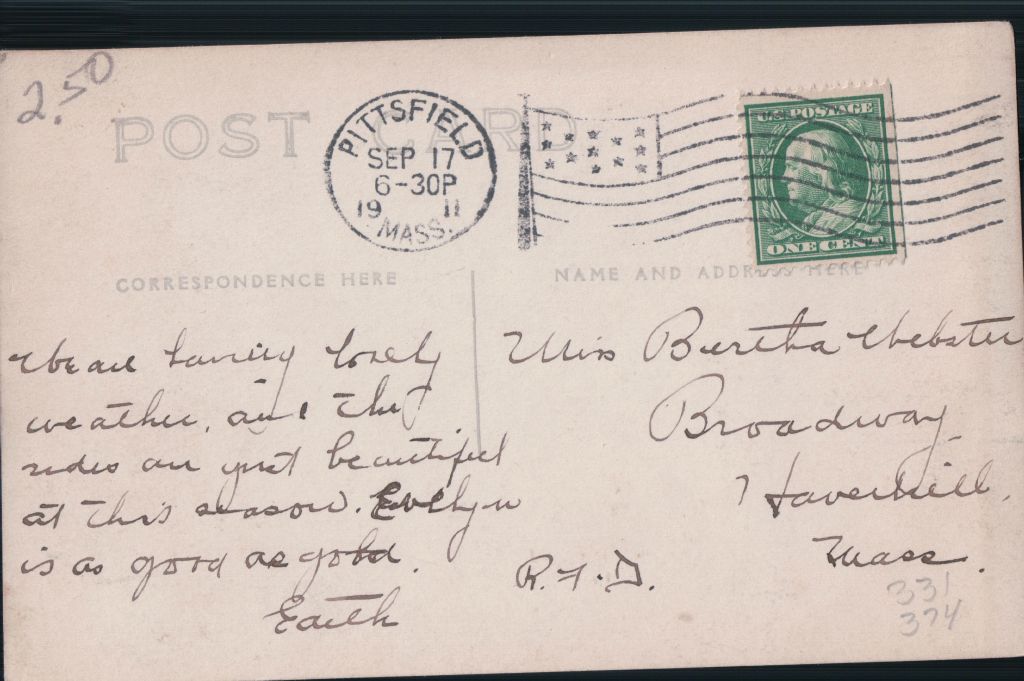 2.50
POST CARD
PITTSFIELD
SEP 17
6-30P
19 11
MASS.
U.S. POSTAGE
ONE CENT
CORRESPONDENCE HERE
NAME AND ADDRESS HERE
We are having lovely
weather, and the
rides are just beautiful
at this season. Evelyn
is as good as gold.
Miss Bertha Webster
Broadway
Haverhill.
Mass.
R.F.D.
331
374